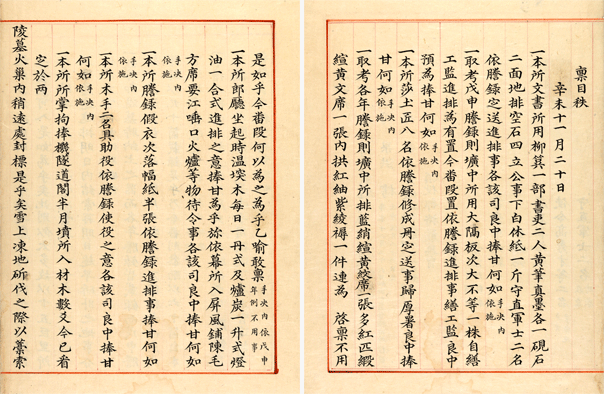 稟目秩
辛未十一月二十日
一本所文書所用柳箕一部書吏二人黃筆眞墨各一硯石
二面地排空石四立公事下白休紙一斤守直軍士二名
依謄錄定送進事各該司良中捧甘何如手決內依施
一取考戊申謄錄則壙中所用大隔板次大不等一株自繕
工監進排為有置今番段置依謄錄進排事繕工監良中
預為捧甘何如手決內依施
一本所莎土匠八名依謄錄修成冊定送事歸厚署良中捧
甘何如手決內依施
一取考各年謄錄則壙中所排藍綃縇黃紋席二張多紅匹緞
縇黃文席一張內拱紅紬紫綾褥一件連為 啓稟不用
是如乎今番段何以為之為乎乙喻敢稟手決內依戊申年例不用事
一本所郎廳坐起時溫堗木每日一丹式及爐炭一升式燈
油一合式進排之意捧甘為乎旀依幕所入屏風鋪陳毛
方席要江唾口火爐等物待令事各該司良中捧甘何如手決內依施
一本所謄錄假衣次落幅紙半張依謄錄進排事捧甘何如手決內依施
一本所木手二名具助役依謄錄使役之意各該司良中捧甘
何如手決內依施
一本所所掌拘捧機隧道閣半月墳所入材木數爻今已看
定於兩
陵墓火巢內稍遠處封標是乎矣雪上凍地斫伐之際以藁索